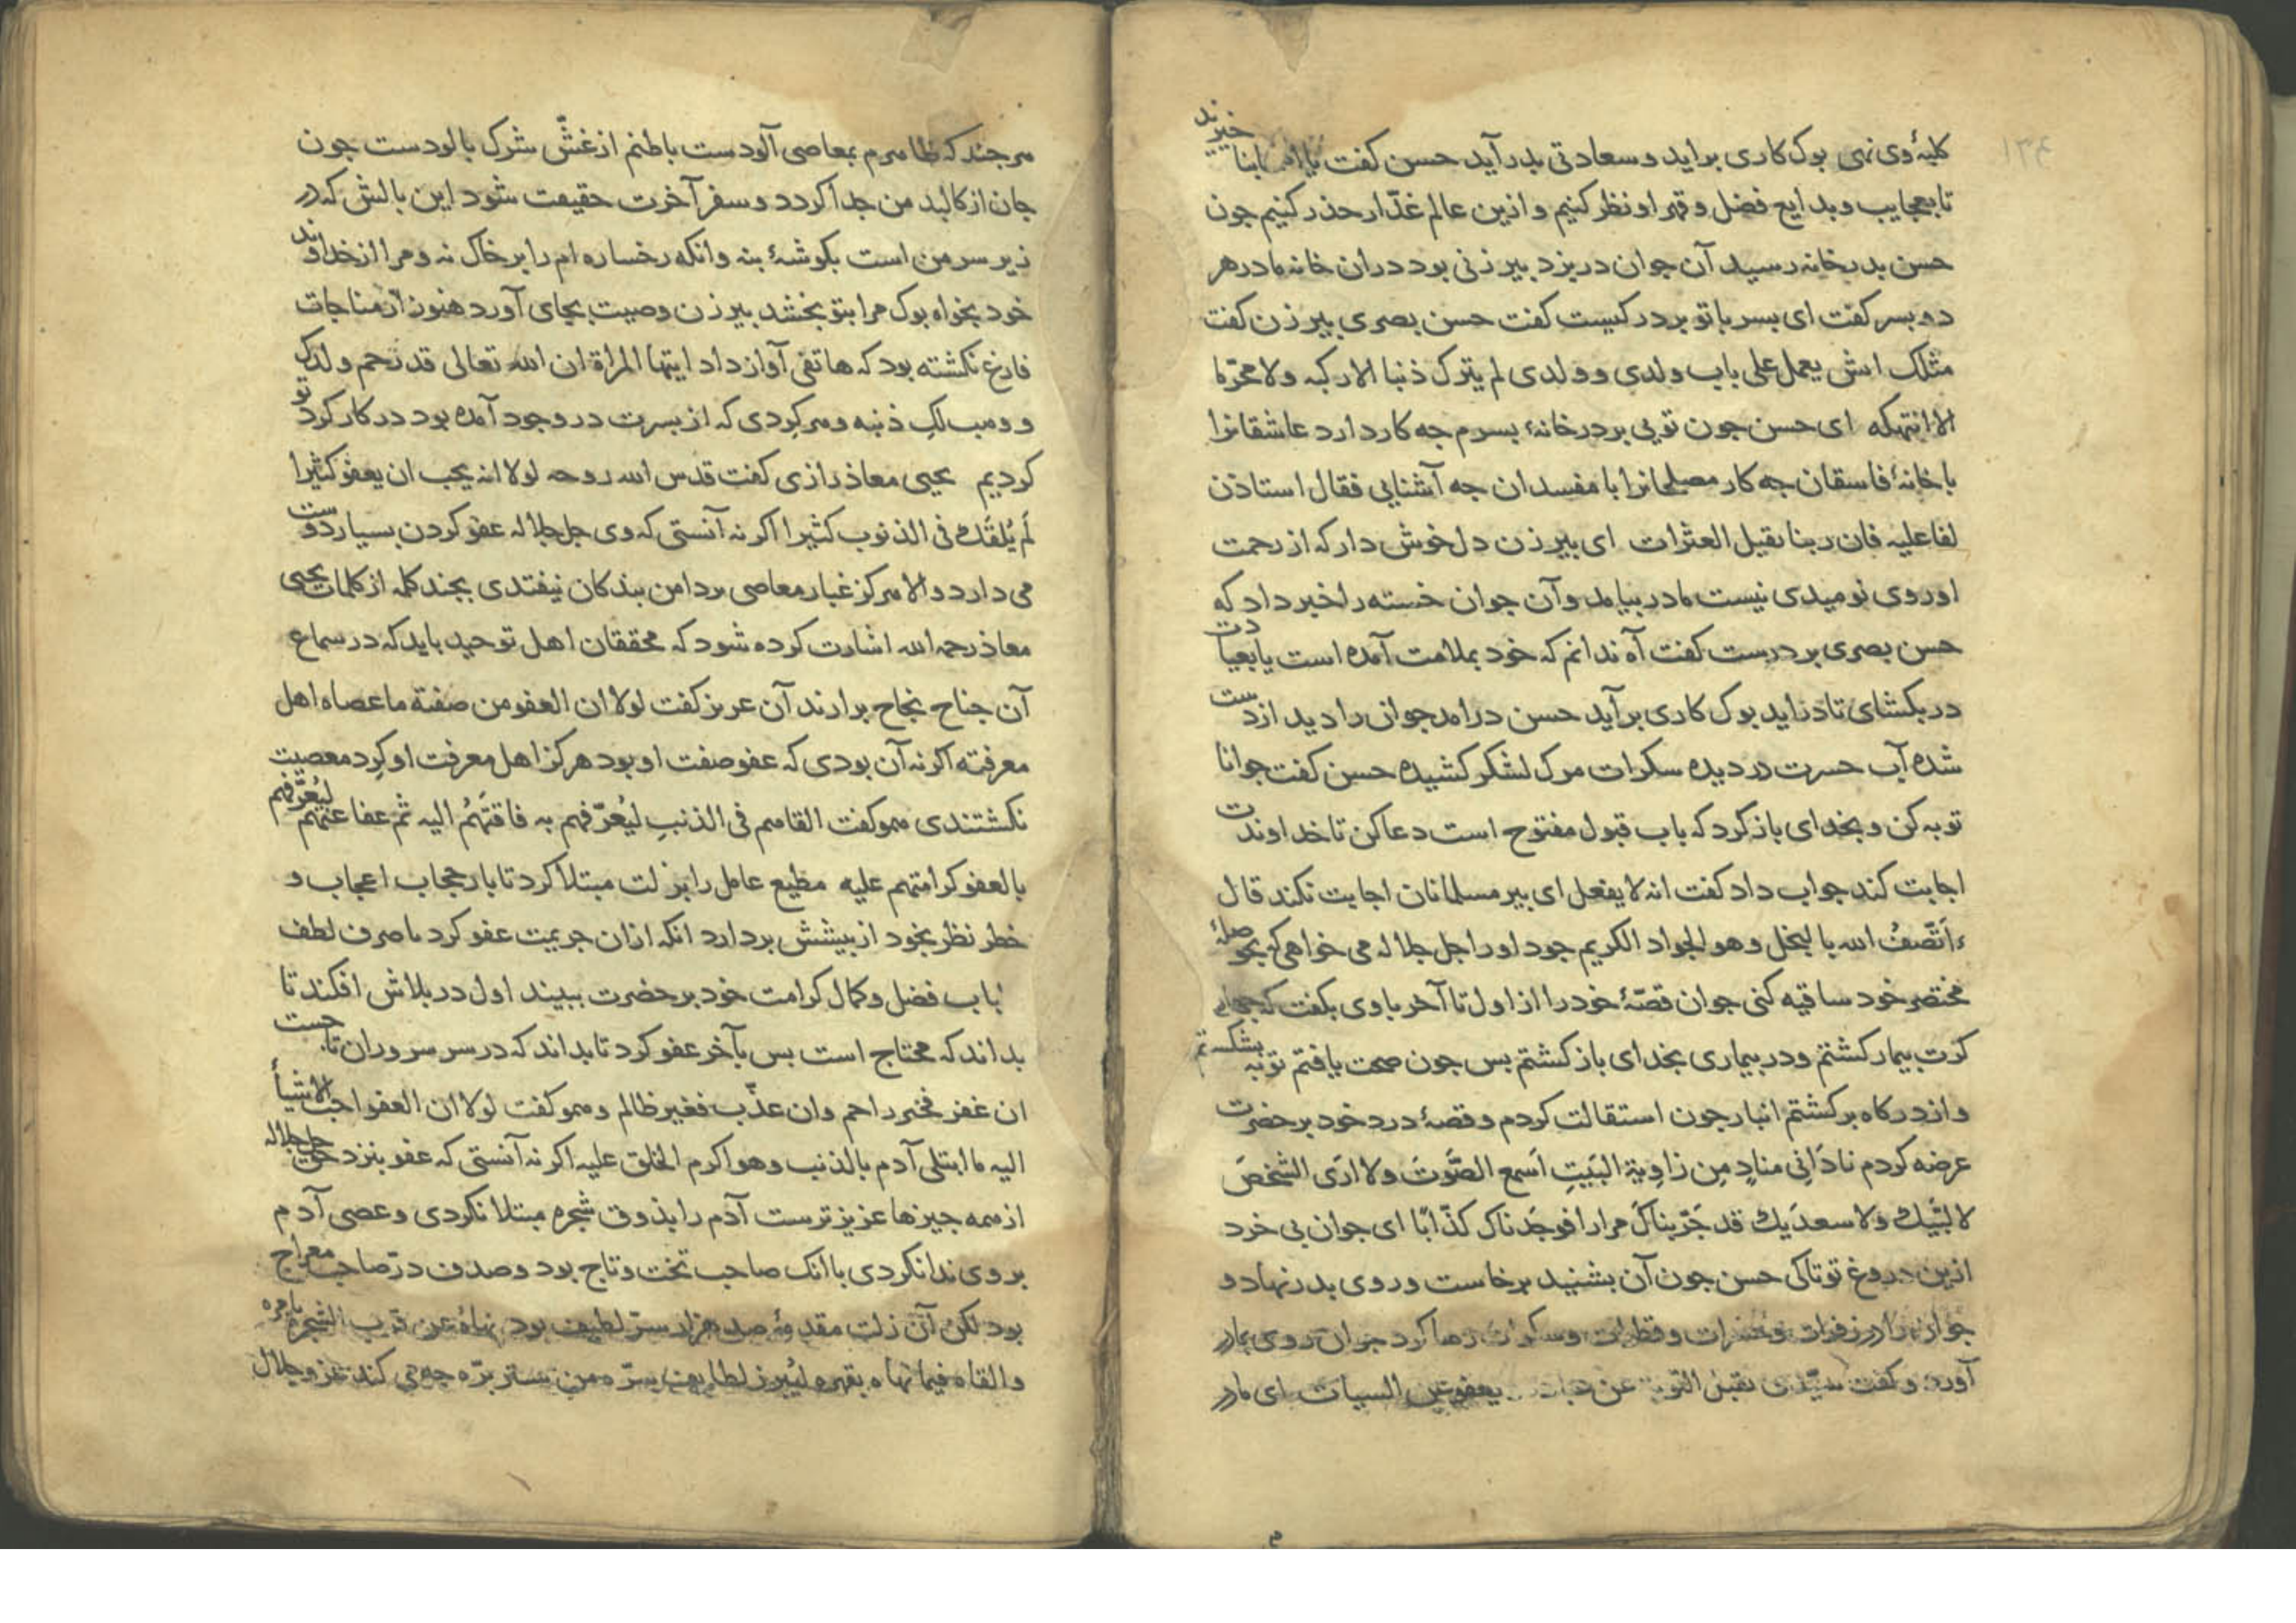 ۱۳۴
کلبهٔ وی نهی بوک کاری براید و سعادتی بدر آید حسن کفت یا ابنا خیزند
تا بعجایب و بدایع فضل و قهر او نظر کنیم و ازین عالم غدّار حذر کنیم جون
حسن بدر خانه رسید آن جوان در بزد بیر زنی بود دران خانه مادر هر
دو بسر کفت ای بسر با تو بر در کیست کفت حسن بصری بیر زن کفت
مثلک اش یعمل علی باب ولدی و ولدی لم یترک ذنبا الا رکبه ولا محرّما
الا انتهکه ای حسن جون تویی بر در خانهٔ بسرم جه کار دارد عاشقانرا
با خانهٔ فاسقان جه کار مصلحانرا با مفسدان جه آشنایی فقال استاذن
لفا علیه فان ربنا یقیل العثرات ای بیر زن دل خوش دار که از رحمت
او روی نومیدی نیست مادر بیامد و آن جوان خسته را خبر داد که
حسن بصری بر درست کفت آه ندانم که خود بملامت آمده است یا بعیادت
در بکشای تا در اید بوک کاری بر آید حسن درامد جوان را دید از دست
شده آب حسرت در دیده سکرات مرک لشکر کشیده حسن کفت جوانا
توبه کن و بخدای باز کرد که باب قبول مفتوح است دعا کن تا خداوندت
اجابت کند جواب داد کفت انه لا یفعل ای بیر مسلمانان اجابت نکند قال
ءَاَتَّصفُ الله بالبخل وهو الجواد الکریم جود او را جل جلاله می خواهی که بحوصلهٔ
مختصر خود ساقیه کنی جوان قصّهٔ خود را از اول تا آخر با وی بکفت که
کرت بیمار کشتم و در بیماری بخدای باز کشتم بس جون صحت یافتم توبه بشکستم
و از درکاه برکشتم انبار جون استقالت کردم و قصهٔ درد خود بر حضرت
عرضه کردم نادَانِی منادٍ مِن زاوِیةِ البَیتِ اَسمع الصَّوتَ ولا اری الشخصَ
لا لبَّیك ولا سعدَیك قد جَرّبناکَ مرارا فوجَدناک کذّابًا ای جوان بی خرد
ازین دروغ تو تا کی حسن جون آن بشنید برخاست و روی بدر نهاد و
جوانرا در زفرات و حسرات و قطرات و سکرات رها کرد جوان روی بمادر
آورد و کفت سیّدی یقبل التوبة عن عباده یعفو عن السیات ای مادر
هرجند که ظاهرم بمعاصی آلودست باطنم از غشّ شرک بالودست جون
جان از کالبد من جدا کردد و سفر آخرت حقیقت شود این بالش که در
زیر سر من است بکوشهٔ بنه وانکه رخساره ام را بر خاک نه و مرا از خداوند
خود بخواه بوک مرا بتو بخشد بیر زن وصیت بجای آورد هنوز از مناجات
فارغ نکشته بود که هاتفی آواز داد ایتها المراة ان الله تعالی قد رحم ولدک
و وهب لکِ ذنبه و هر کردی که از بسرت در وجود آمده بود در کار کرد تو
کردیم یحیی معاذ رازی کفت قدس الله روحه لولا انه یحب ان یعفو کثیرا
لَم یُلقَك فی الذنوب کثیرا اکر نه آنستی که وی جل جلاله عفو کردن بسیار دوست
می دارد والا هرکز غبار معاصی بر دامن بندکان نیفتدی بجند کلمه از کلمات یحیی
معاذ رحمه الله اشارت کرده شود که محققان اهل توحید باید که در سماع
آن جناح نجاح برارند آن عزیز کفت لولا ان العفو من صفتة ما عصاه اهل
معرفته اکر نه آن بودی که عفو صفت او بود هرکز اهل معرفت او کرد معصیت
نکشتندی همو کفت القاهم فی الذنبِ لیُعرّفهم به فاقَتَهُم الیه ثم عفا عنهم لیُعرّفهم
بالعفو کرامتهم علیه مطیع عامل را بزلت مبتلا کرد تا بار حجاب اعجاب و
خطر نظر بخود از بیشش بردارد انکه ازان جریمت عفو کرد ما صرف لطف
باب فضل و کمال کرامت خود بر حضرت ببیند اول در بلاش افکند تا
بداند که محتاج است بس بآخر عفو کرد تا بداند که در سر سروران تا جست
ان غفر فخیر راحم وان عذّب فغیر ظالم و همو کفت لولا ان العفو احب الاشیأ
الیه ما ابتلی آدم بالذنب وهو اکرم الخلق علیه اکر نه آنستی که عفو بنزد حق جل جلاله
از همه جیزها عزیزترست آدم را بذوق شجره مبتلا نکردی و عصی آدم
بر وی ندا نکردی با انک صاحب تخت و تاج بود و صدف درّ صاحب معراج
بود لکن آن زلت مقدمهٔ صد هزار سرّ لطیف بود نهاهُ عن قرب الشجره بامره
والقاه فیما نهاه بقهره لیُبرز لطایف سرّه من ستر برّه جه می کند عز و جلال